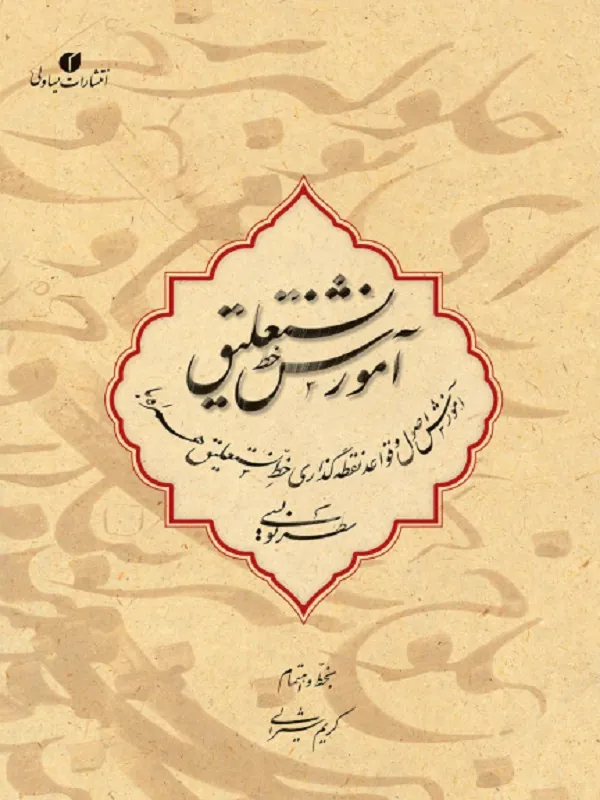 انتشارات یساولی
آموزش خط نستعلیق
آموزش اصول و قواعد نقطه گذاری خطِ نستعلیق همراه با
سطرنویسی
بخطّ و اهتمام
کریم شیرائی